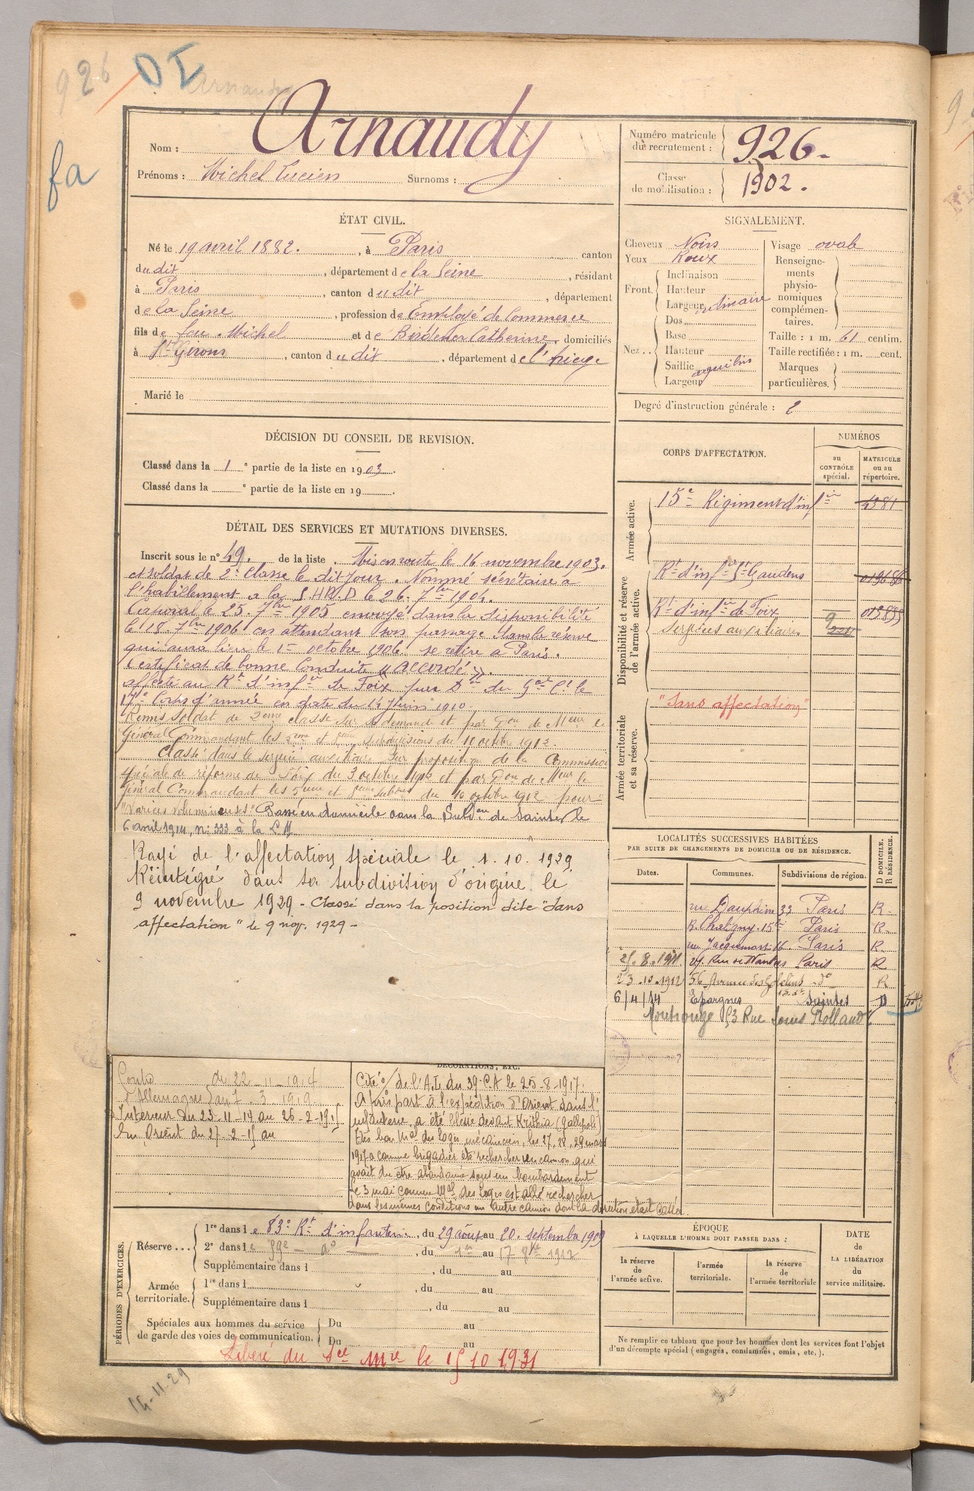 926 DI
Arnaudy
fa
Nom : Arnaudy
Prénoms : Michel Lucien Surnoms :
Numéro matricule du recrutement : 926.
Classe de mobilisation : 1902.
ÉTAT CIVIL.
Né le 19 avril 1882. , à Paris canton
du dit , département de la Seine , résidant
à Paris , canton du dit , département
de la Seine , profession de Employé de Commerce
fils de feu Michel et de Catherine , domiciliés
à St Girons , canton du dit , département de l'Ariège
Marié le
SIGNALEMENT.
Cheveux Noirs
Yeux Roux
Front. Inclinaison
Hauteur
Largeur ordinaire
Nez. Dos
Base
Hauteur
Saillie aquilin
Largeur
Visage ovale
Renseignements physionomiques complémentaires.
Taille : 1 m. 61 centim.
Taille rectifiée : 1 m. cent.
Marques particulières.
Degré d'instruction générale : 2
DÉCISION DU CONSEIL DE REVISION.
Classé dans la 1 e partie de la liste en 1903.
Classé dans la e partie de la liste en 19
DÉTAIL DES SERVICES ET MUTATIONS DIVERSES.
Inscrit sous le n° 49. de la liste Mis en route le 16 novembre 1903.
et soldat de 2e classe le dit jour. Nommé secrétaire à
l'habillement à la S.H.R.D le 26. 7bre 1904.
Caporal le 25. 7bre 1905 envoyé dans la disponibilité
le 18 7bre 1906 en attendant son passage dans la réserve
qui aura lieu le 1er octobre 1906. se retire à Paris.
Certificat de bonne Conduite "Accordé"
affecté au Rt d'infie de Foix par Don du Gal Ct le
17e Corps d'armée en date du Juin 1910.
Remis soldat de 2ème classe sur sa demande et par Don de Mieur le
Général Commandant les 2ème et subdivisions du 11 octobre 1912.
Classé dans le service auxiliaire sur proposition de la Commission
spéciale de réforme de Foix du 3 octobre 1912 et par Don de Mieur le
Général Commandant les et subdons du 10 octobre 1912 pour
"varices volumineuses" Passé en domicile dans la Subdon de Saintes le
6 avril 1914, n° 333 à la L.M
Rayé de l'affectation spéciale le 1.10.1929
Réintégré dans sa subdivision d'origine le
9 novembre 1929 - Classé dans la position dite "Sans
affectation" le 9 nov. 1929 -
CORPS D'AFFECTATION.
NUMÉROS
au CONTRÔLE spécial.
MATRICULE ou au répertoire.
Armée active.
15e Régiment d'infie 4381
Disponibilité et réserve de l'armée active.
Rt d'infie St Gaudens
Rt d'infie de Foix 013835
Services auxiliaires
Armée territoriale et sa réserve.
"Sans affectation"
LOCALITÉS SUCCESSIVES HABITÉES
PAR SUITE DE CHANGEMENTS DE DOMICILE OU DE RÉSIDENCE.
Dates. Communes. Subdivisions de région. D DOMICILE. R RÉSIDENCE.
rue Dauphine 33 Paris R.
R. Chaligny. 15 bis Paris R.
rue Jacquemont 16. Paris R
27 Rue de Nantes Paris R
23.12.1912 56 Avenue des Gobelins do R
6/4/14 Epargnes Saintes D
Montrouge 53 Rue Louis Rolland
DÉCORATIONS, ETC.
Contre du 22-11-1914
l'Allemagne au 1-3-1919
Intérieur du 23-11-14 au 26-2-1915
En Orient du 27-2-15 au
Cité o/ de l'A.L du 39e C.A le 25-8-1917.
A pris part à l'expédition d'Orient dans l'
infanterie, a été blessé devant Krithia (Gallipoli)
Très bon Mal des logis mécanicien, les 27, 28, 29 mars
1917 a comme brigadier été rechercher un camion qui
avait dû être abandonné sous un bombardement
le 3 mai comme Mal des logis est allé rechercher
dans les mêmes conditions un autre camion dont la direction était calée.
PÉRIODES D'EXERCICES.
Réserve... 1re dans le 83e Rt d'infanterie , du 29 août au 20. septembre 1909
2e dans le 59e - do , du 1er au 17 8bre 1912
Supplémentaire dans l , du au
Armée territoriale. 1re dans l , du au
Supplémentaire dans l , du au
Spéciales aux hommes du service de garde des voies de communication. Du au
Du au
Libéré du Sce Mre le 15 10 1931
ÉPOQUE
À LAQUELLE L'HOMME DOIT PASSER DANS :
la réserve de l'armée active.
l'armée territoriale.
la réserve de l'armée territoriale
DATE de LA LIBÉRATION du service militaire.
Ne remplir ce tableau que pour les hommes dont les services font l'objet
d'un décompte spécial (engagés, condamnés, omis, etc.).
14-11-29